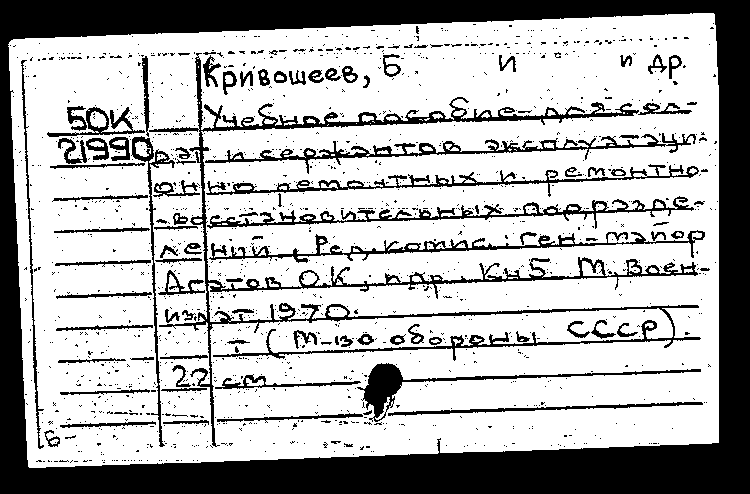 Кривошеев, Б И и др.
50К
21990
Учебное пособие для сол-
дат и сержантов эксплуатаци-
онно ремонтных и ремонтно-
-восстановительных подразде-
лений. Ред. комис.: ген.-майор
Агатов О.К, и др. Кн 5 М, Воен-
издат, 1970.
т (М-во обороны СССР).
22 см.
Б-